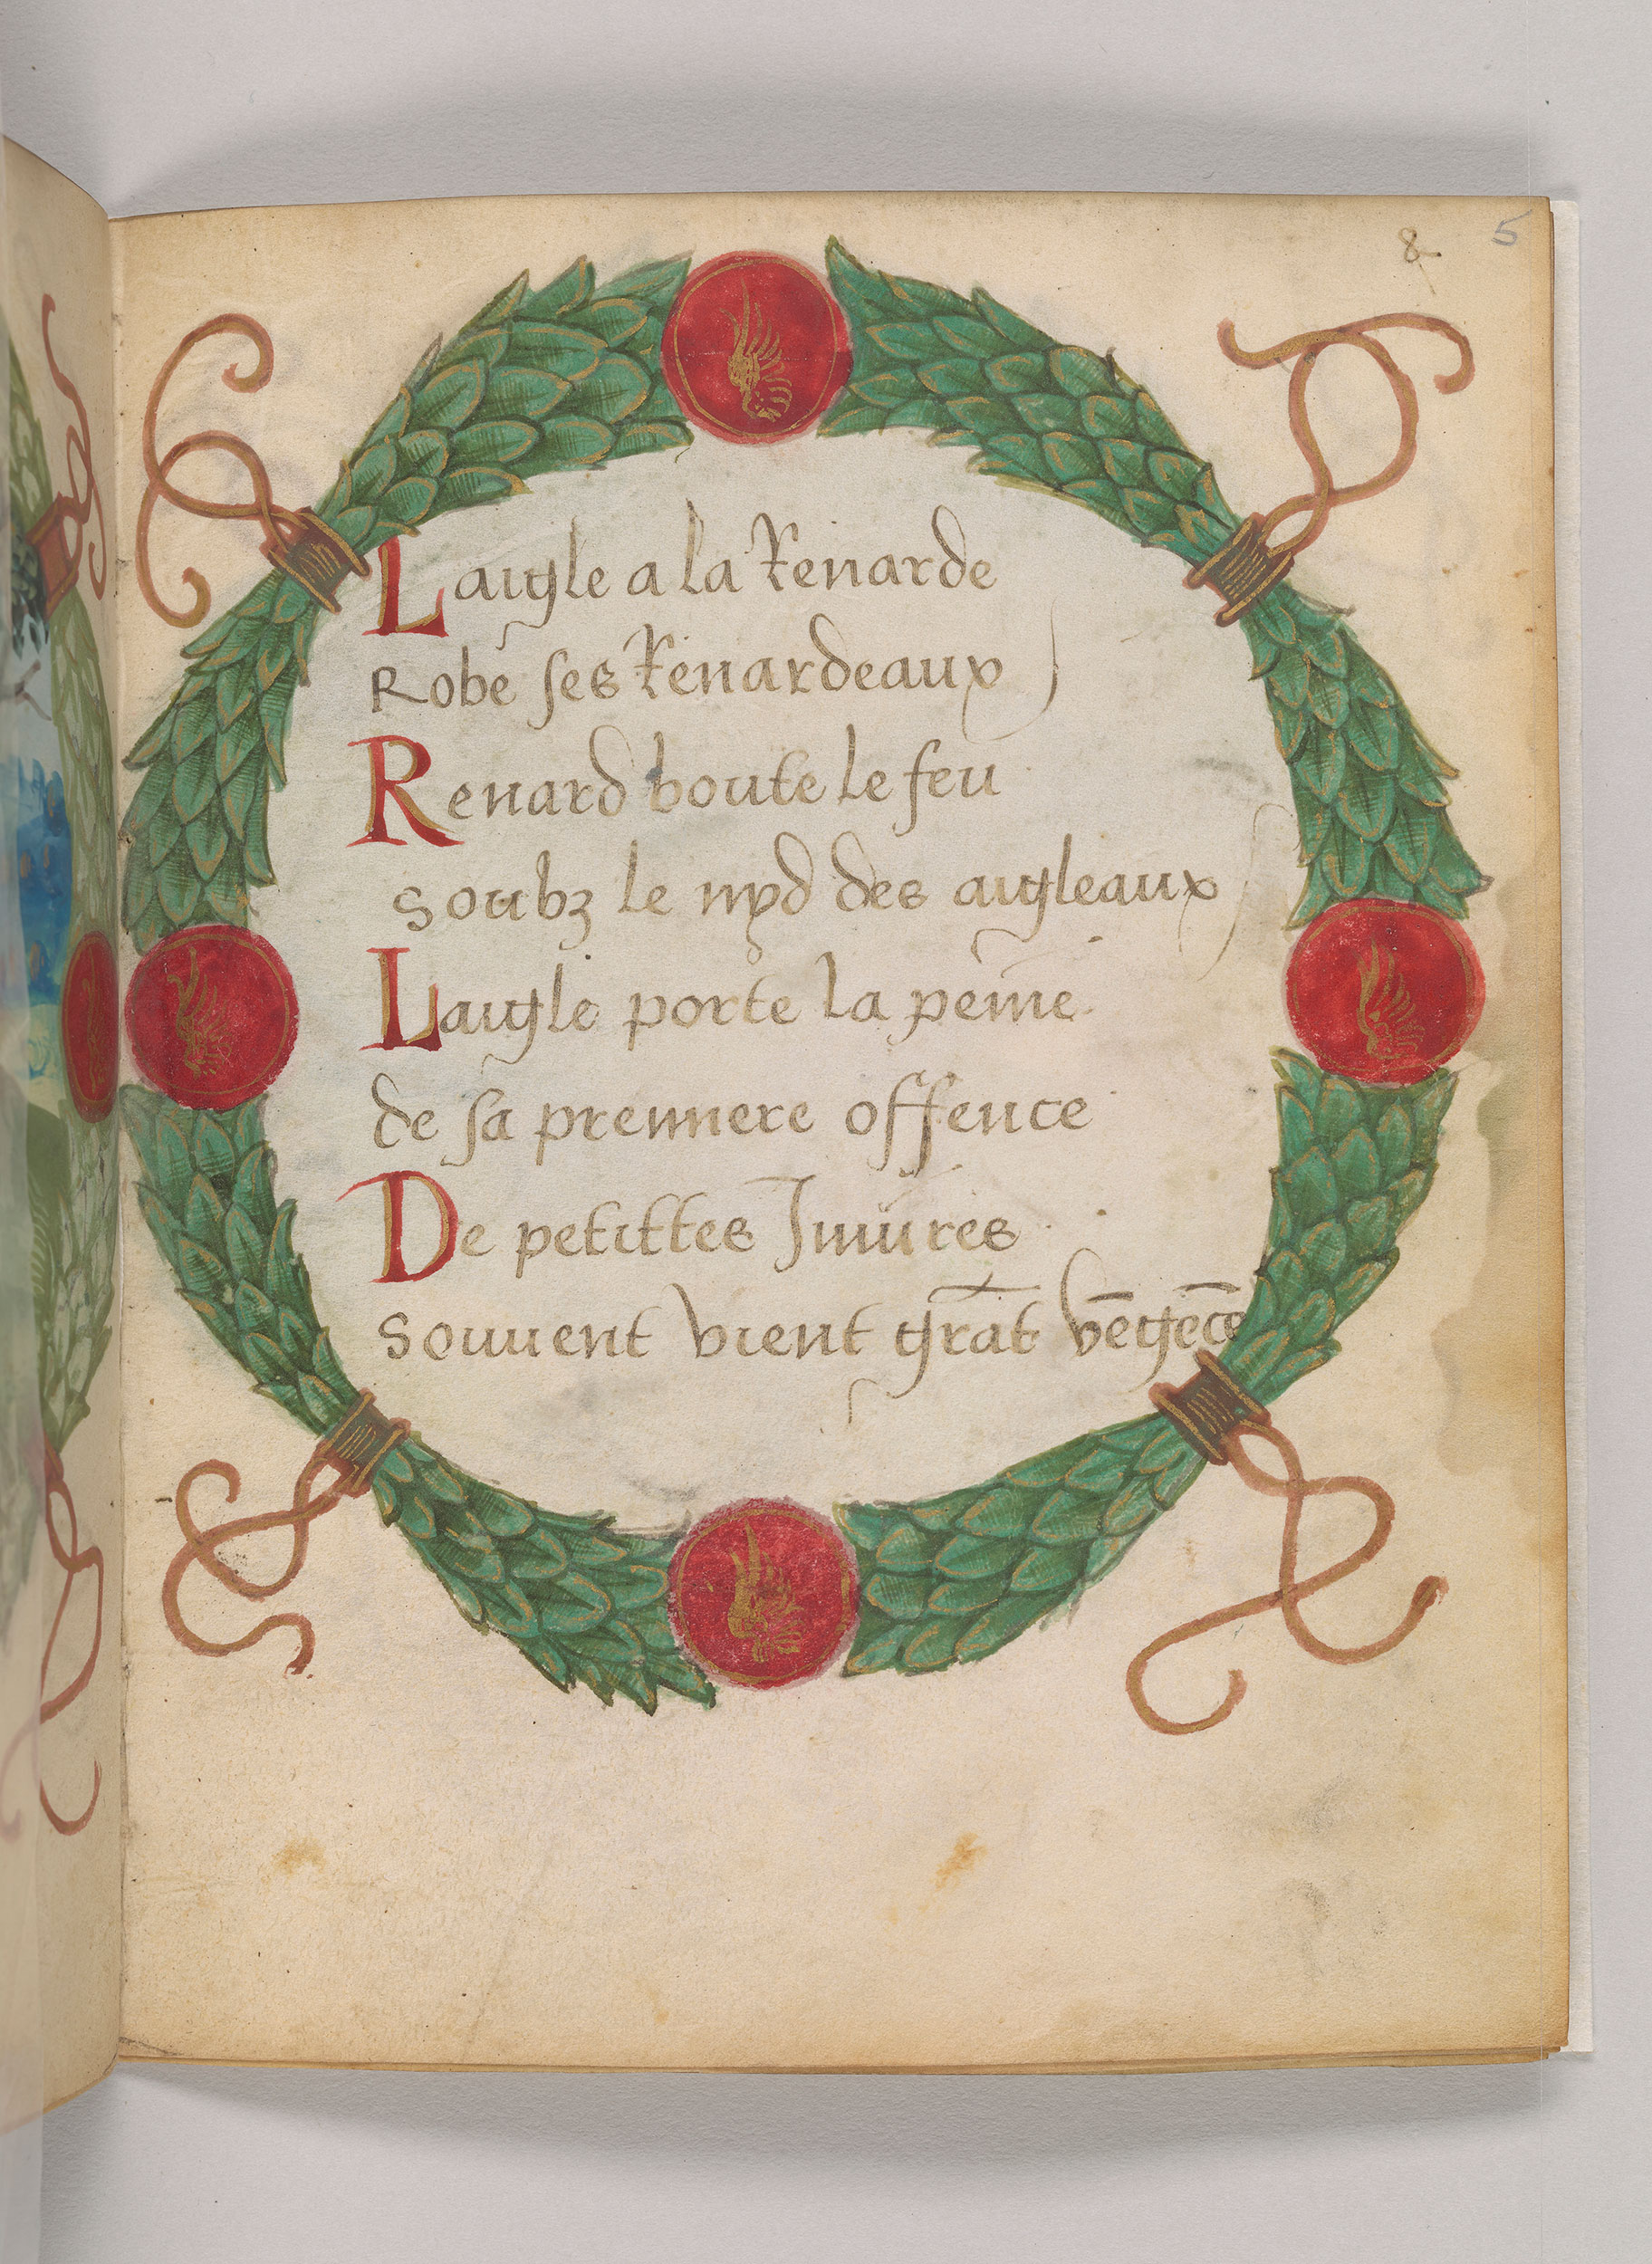 8 5
Laigle a la Renarde
Robe ses Renardeaux
Renard boute le feu
soubz le nyd des aigleaux
Laigle porte la peine
de sa premiere offence
De petittes Iniures
souuent vient grāt vēgēce